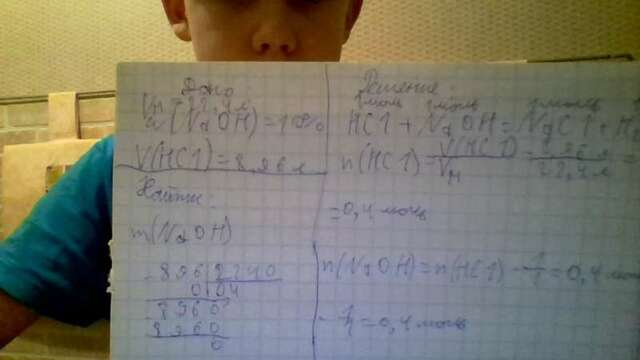 Дано
Vм = 22,4 л
ω(NaOH) = 10%
V(HCl) = 8,96 л
Найти:
m(NaOH)
896 2240
0 04
8960
8960
0
Решение:
1моль 1моль 1моль
HCl + NaOH = NaCl + H
n(HCl) = V(HCl) / Vм = 8,96 л / 22,4 л =
= 0,4 моль
n(NaOH) = n(HCl) · 1/1 = 0,4 мол
· 1/1 = 0,4 моль